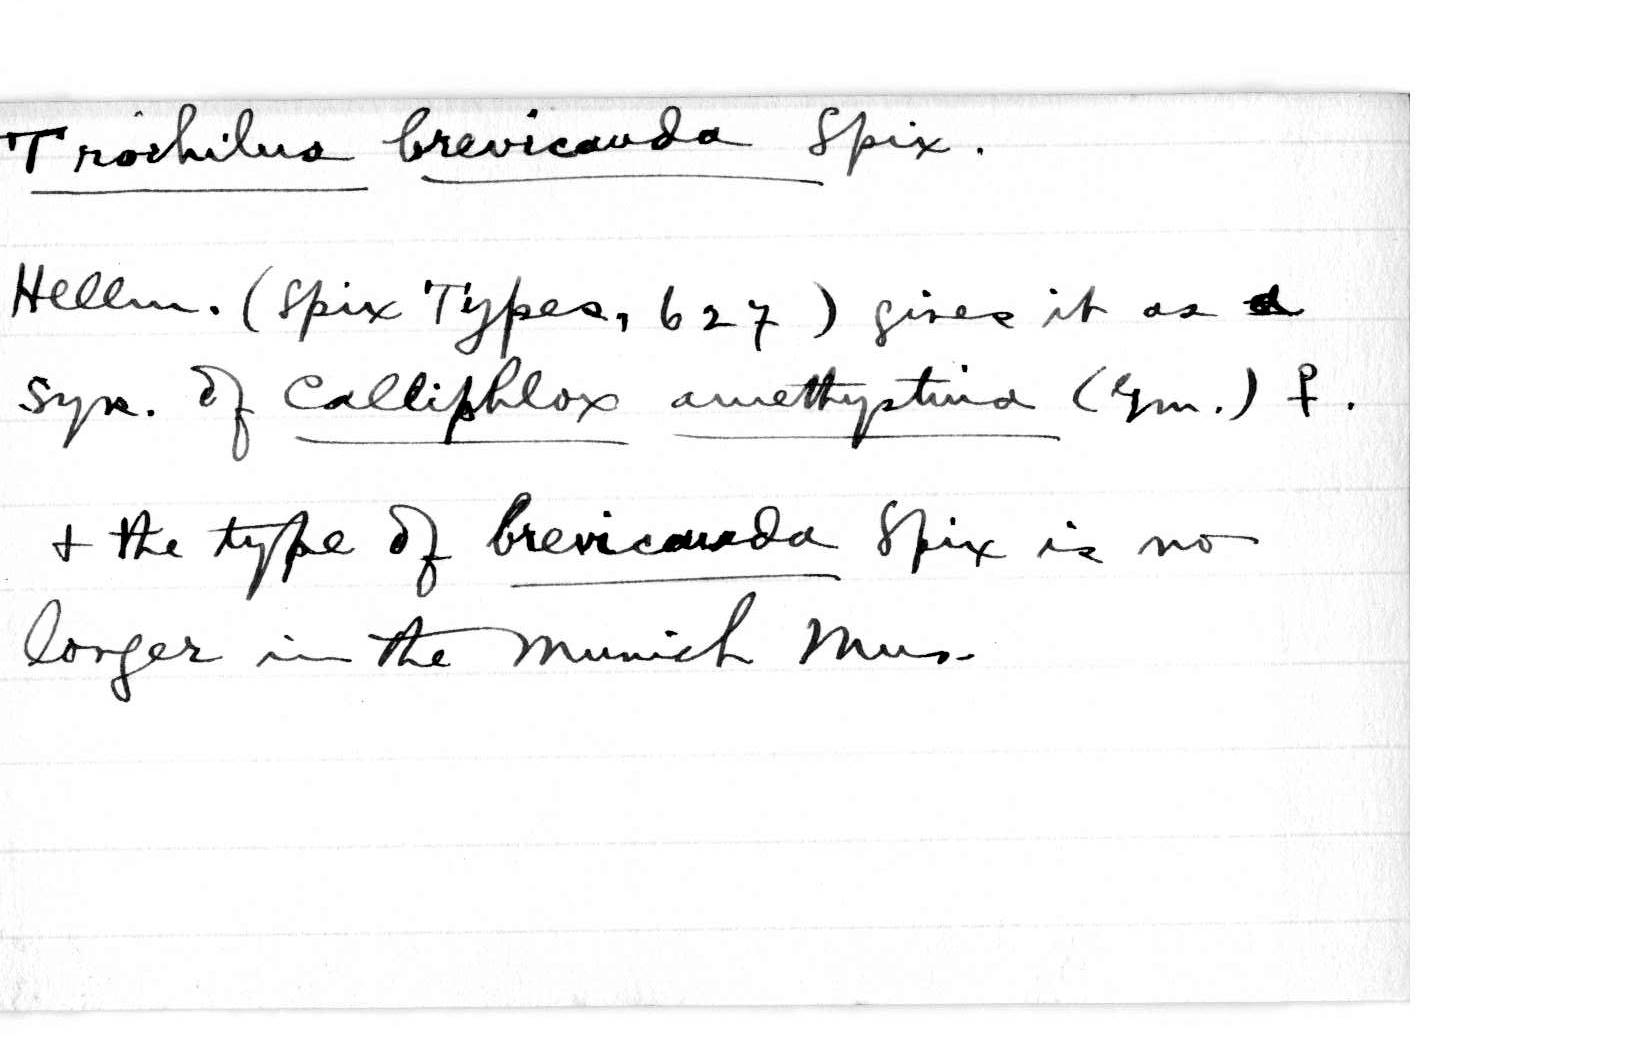 Trochilus brevicauda Spix.
Hellm. (Spix Types, 627) gives it as a
syn. of Calliphlox amethystina (Gm.) ♀.
+ the type of brevicauda Spix is no
longer in the Munich Mus.